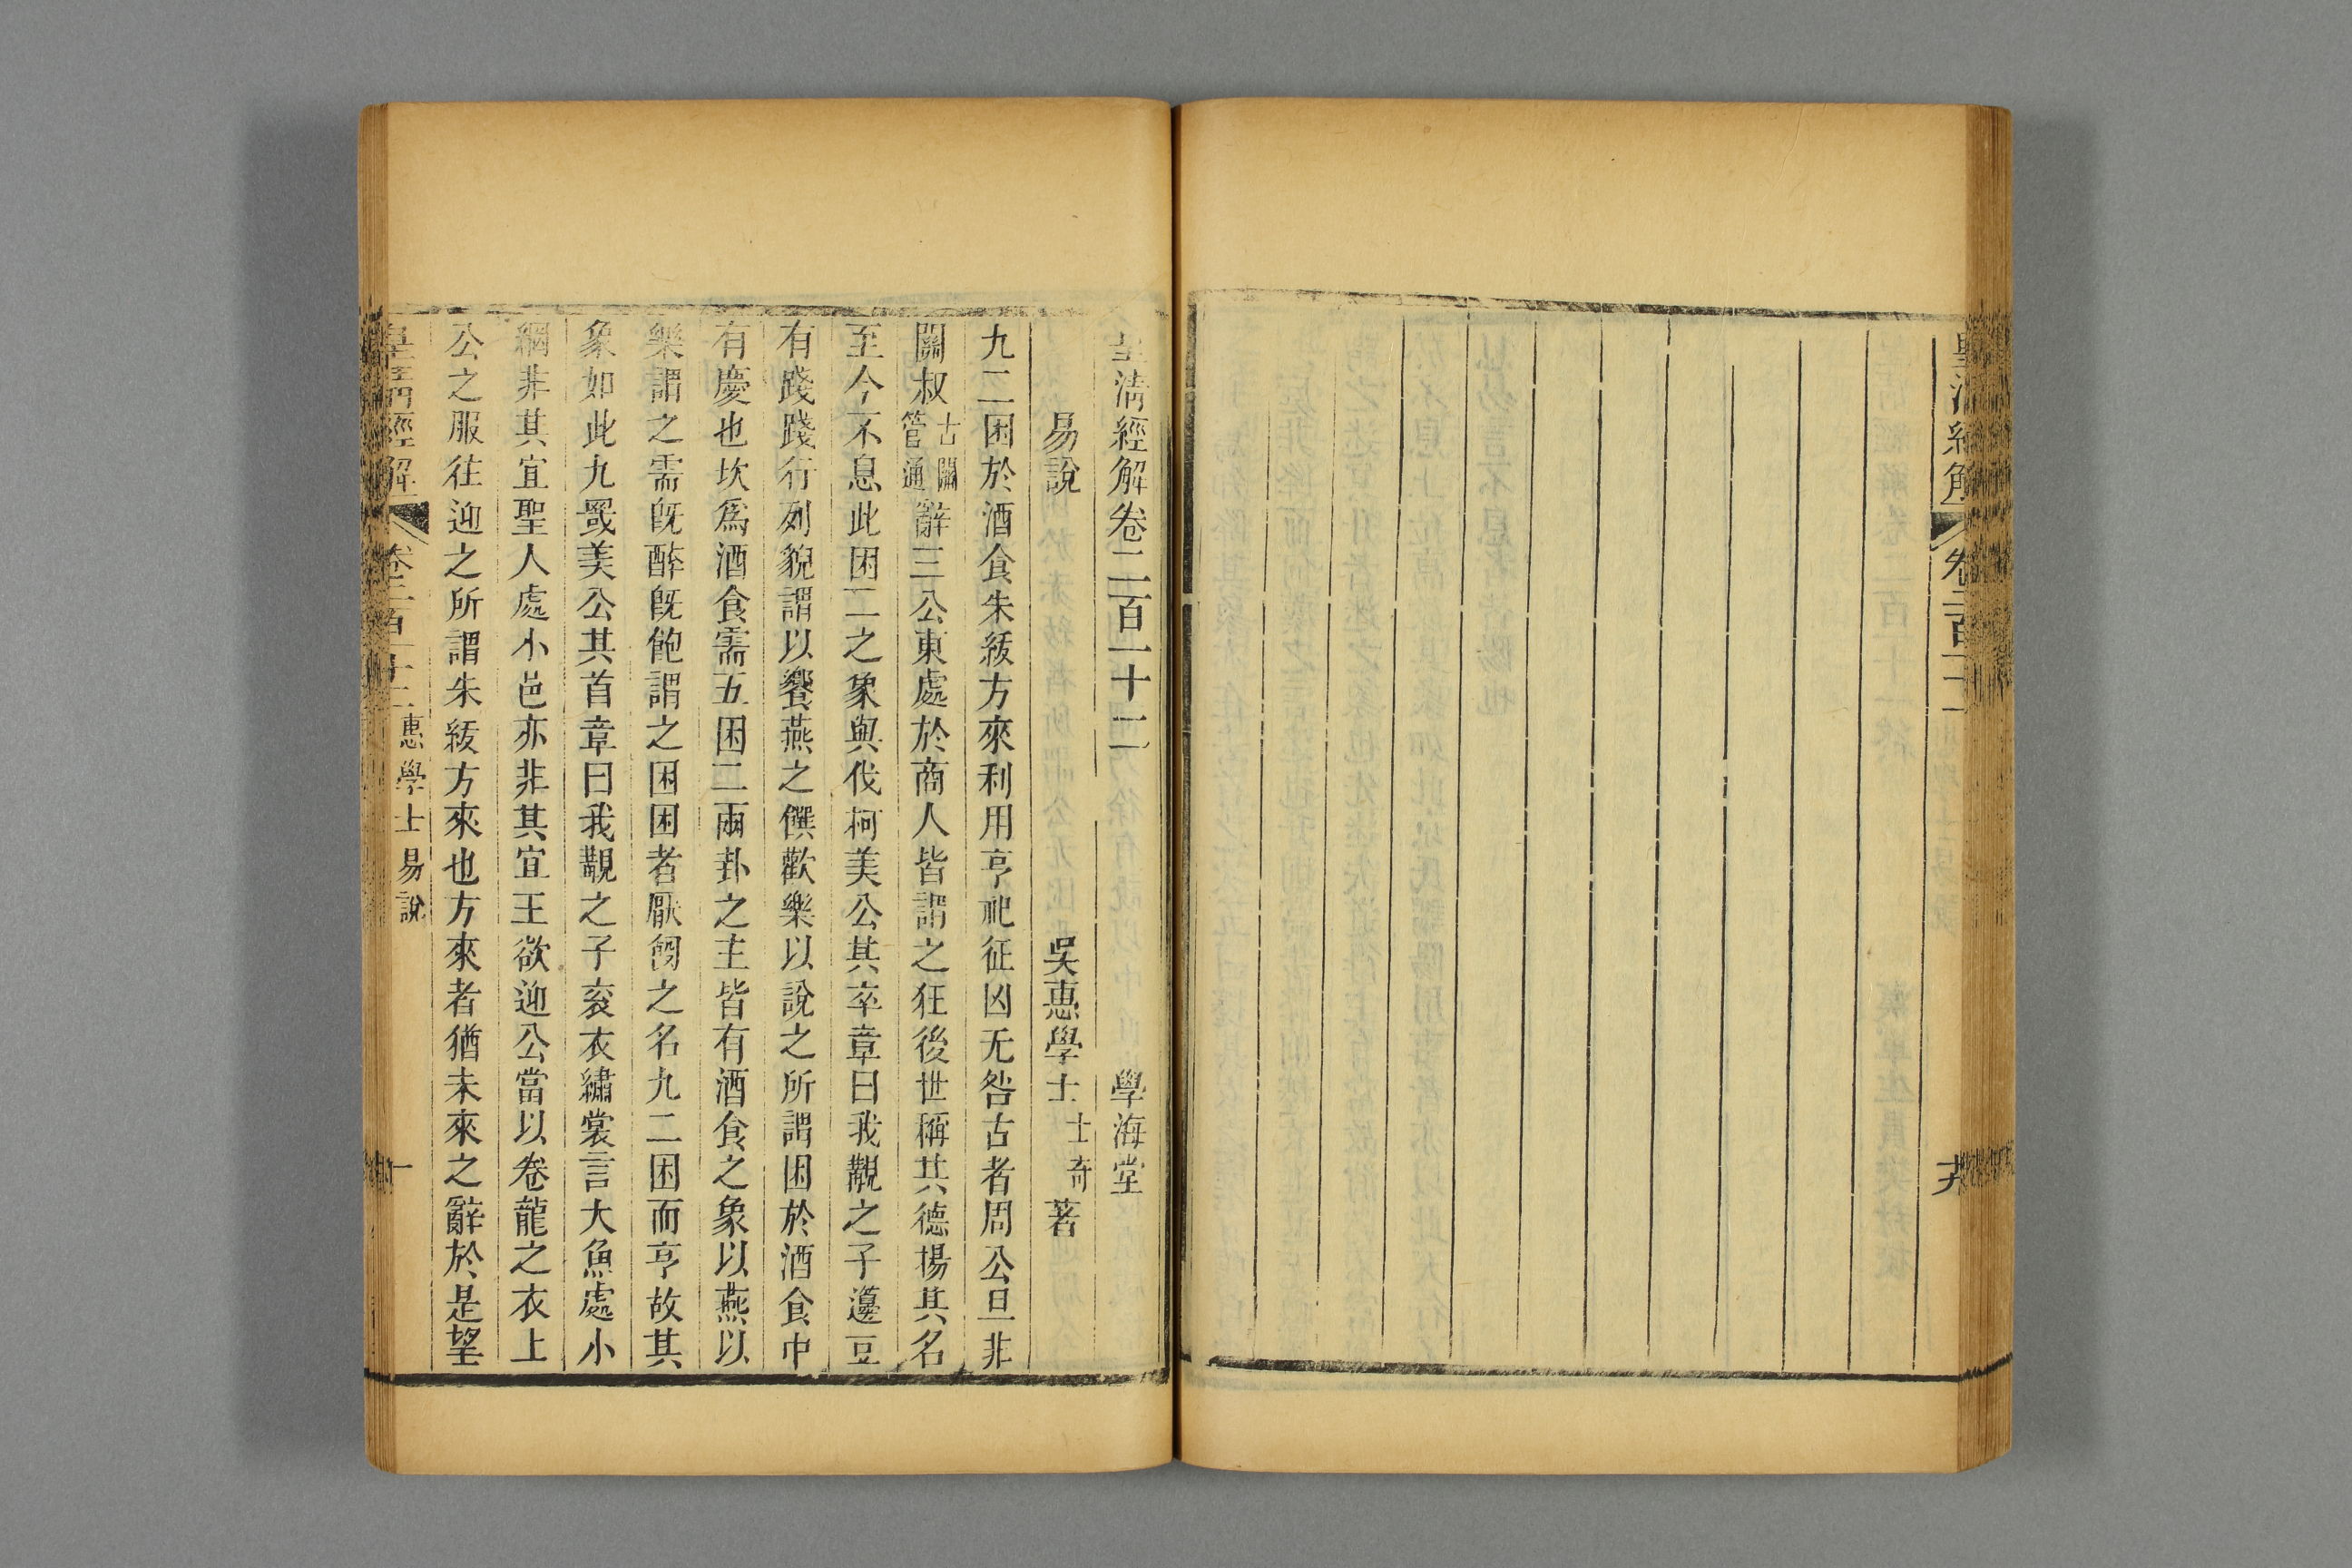 皇清經解
皇清經解卷二百一十二 學海堂
易說 吳惠學士士奇著
九二困於酒食朱紱方來利用亨祀征凶无咎古者周公旦非
關叔古關管通辭三公東處於商人皆謂之狂後世稱其德揚其名
至今不息此困二之象與伐柯美公其卒章曰我覯之子籩豆
有踐踐行列貌謂以饗燕之饌歡樂以說之所謂困於酒食中
有慶也坎爲酒食需五困二兩卦之主皆有酒食之象以燕以
樂謂之需旣醉旣飽謂之困困者厭飫之名九二困而亨故其
象如此九罭美公其首章曰我覯之子衮衣繡裳言大魚處小
網非其宜聖人處小邑亦非其宜王欲迎公當以卷龍之衣上
公之服往迎之所謂朱紱方來也方來者猶未來之辭於是望
皇清經解 卷二百一十二 惠學士易說 一